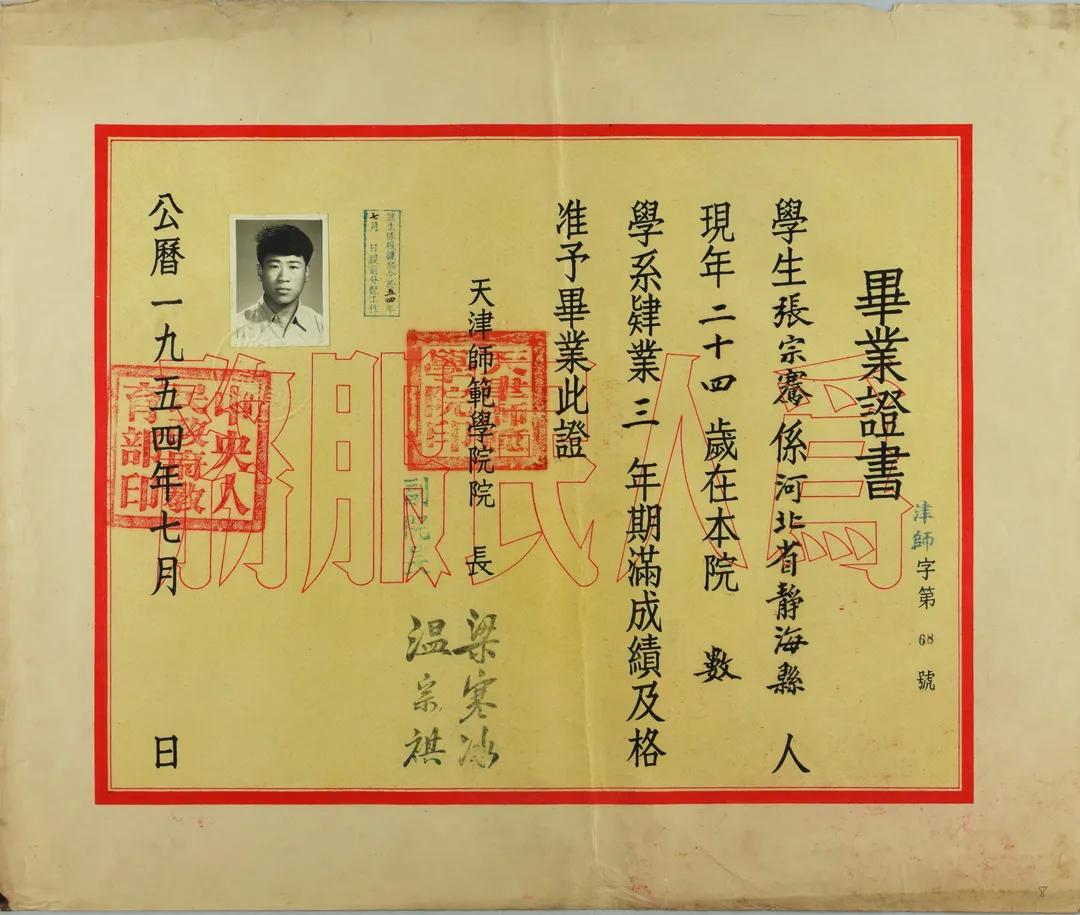 畢業證書
津師字第 68 號
學生張宗騫係河北省靜海縣人
現年二十四歲在本院 數
學系肄業三年期滿成績及格
准予畢業此證
天津師範學院院 長 梁寒冰
副院長 温宗祺
七月 日提前分配工作
公曆一九五四年七月 日
為人民服務
天津師範
學院印
中央人
民政府教
育部印
8